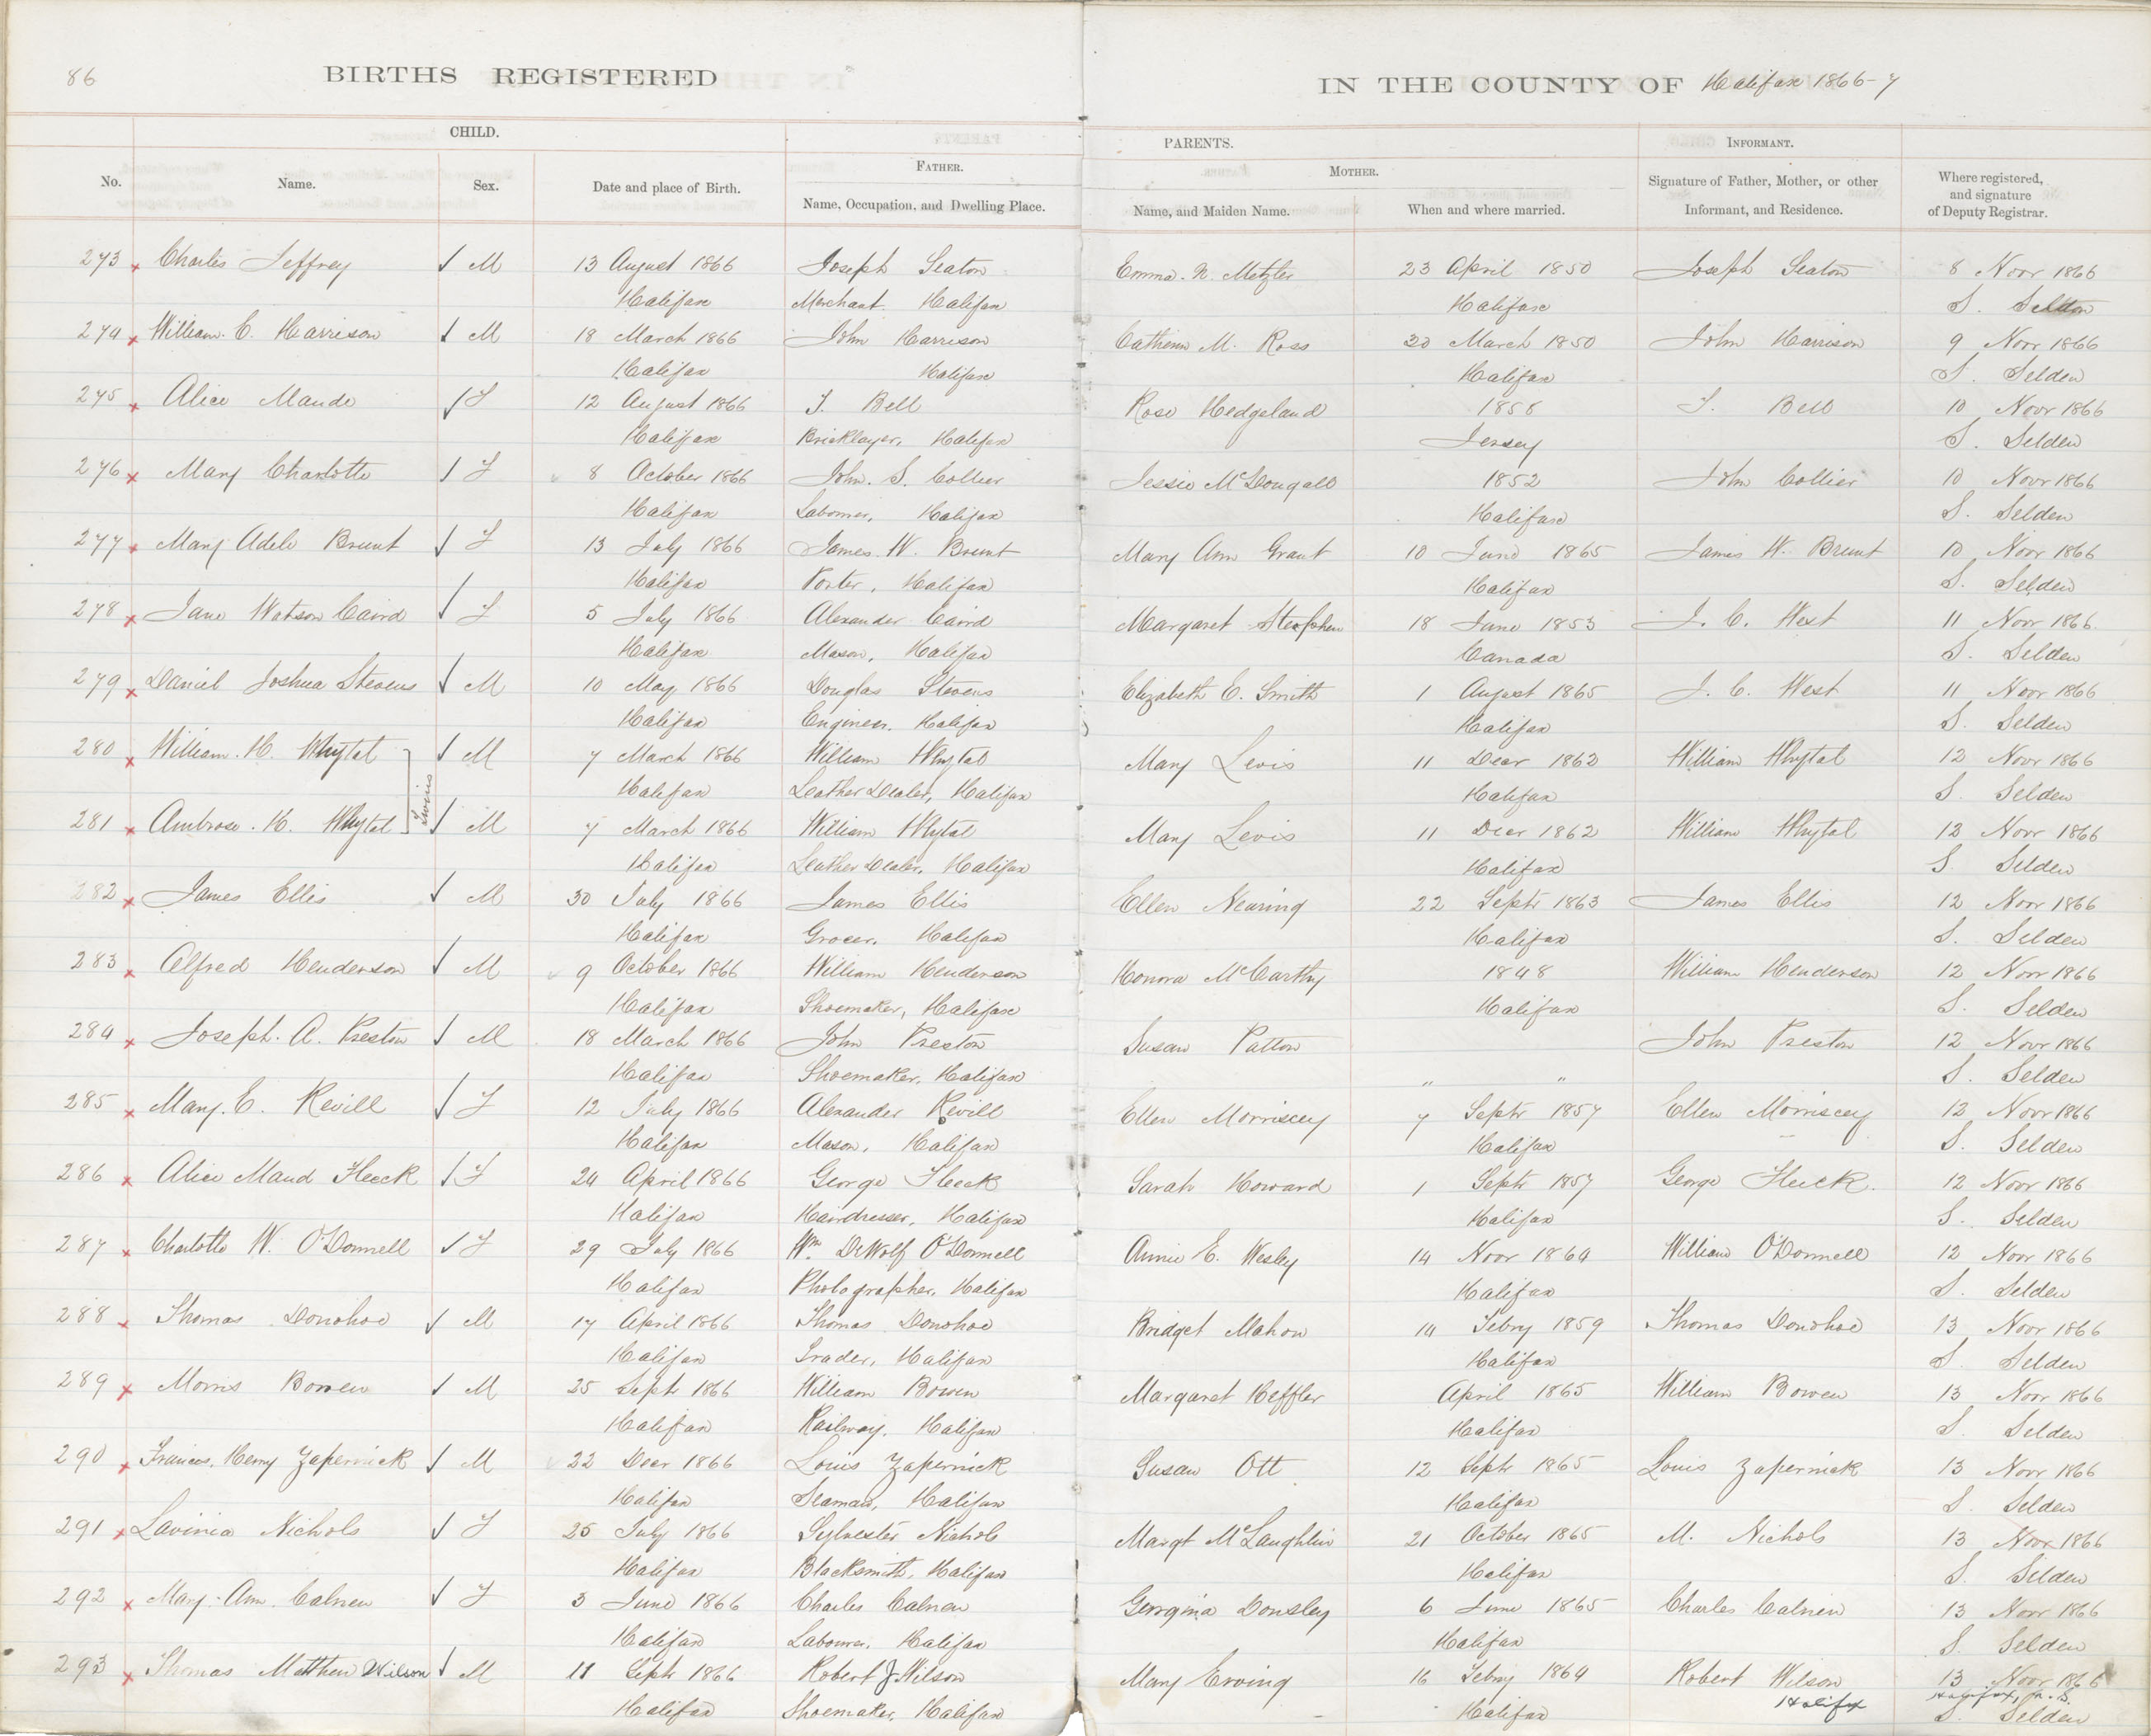 86
BIRTHS REGISTERED
IN THE COUNTY OF Halifax 1866-7
CHILD.
PARENTS.
INFORMANT.
No.
Name.
Sex.
Date and place of Birth.
FATHER.
Name, Occupation, and Dwelling Place.
MOTHER.
Name, and Maiden Name.
When and where married.
Signature of Father, Mother, or other
Informant, and Residence.
Where registered,
and signature
of Deputy Registrar.
273 x Charles Jeffrey ✓ M 13 August 1866 Joseph Seaton Emma. N. Metzler 23 April 1850 Joseph Seaton 8 Novr 1866
Halifax Merchant Halifax Halifax S. Selden
274 x William. C. Harrison ✓ M 18 March 1866 John Harrison M. Ross 20 March 1850 John Harrison 9 Novr 1866
Halifax Halifax Halifax S. Selden
275 x Alice Maude ✓ F 12 August 1866 J. Bell Rose Hedgeland 1858 J. Bell 10 Novr 1866
Halifax Bricklayer, Halifax Jersey S. Selden
276 x Mary Charlotte ✓ F 8 October 1866 John. S. Collier Jessie McDougall 1852 John Collier 10 Novr 1866
Halifax Labourer, Halifax Halifax S. Selden
277 x Mary Adele Brunt ✓ F 13 July 1866 James. W. Brunt Mary Ann Grant 10 June 1865 James W. Brunt 10 Novr 1866
Halifax Porter, Halifax Halifax S. Selden
278 x Jane Watson Caird ✓ F 5 July 1866 Alexander Caird Margaret Stephen 18 June 1853 J. C. West 11 Novr 1866
Halifax Mason, Halifax Canada S. Selden
279 x Daniel Joshua Stevens ✓ M 10 May 1866 Douglas Stevens Elizabeth E. Smith 1 August 1865 J. C. West 11 Novr 1866
Halifax Engineer, Halifax Halifax S. Selden
280 x William. H. Whytal ✓ M 7 March 1866 William Whytal Mary Levis 11 Decr 1862 William Whytal 12 Novr 1866
Twins
Halifax Leather Dealer, Halifax Halifax S. Selden
281 x Ambrose. H. Whytal ✓ M 7 March 1866 William Whytal Mary Levis 11 Decr 1862 William Whytal 12 Novr 1866
Halifax Leather Dealer, Halifax Halifax S. Selden
282 x James Ellis ✓ M 30 July 1866 James Ellis Ellen Nearing 22 Septr 1863 James Ellis 12 Novr 1866
Halifax Grocer, Halifax Halifax S. Selden
283 x Alfred Henderson ✓ M 9 October 1866 William Henderson Honora McCarthy 1848 William Henderson 12 Novr 1866
Halifax Shoemaker, Halifax Halifax S. Selden
284 x Joseph. A. Preston ✓ M 18 March 1866 John Preston Susan Patton John Preston 12 Novr 1866
Halifax Shoemaker, Halifax " " S. Selden
285 x Mary. E. Revill ✓ F 12 July 1866 Alexander Revill Ellen Morriscey 7 Septr 1857 Ellen Morriscey 12 Novr 1866
Halifax Mason, Halifax Halifax S. Selden
286 x Alice Maud Fleeck ✓ F 24 April 1866 George Fleeck Sarah Howard 1 Septr 1857 George Fleeck. 12 Novr 1866
Halifax Hairdresser, Halifax Halifax S. Selden
287 x Charlotte W. O'Donnell ✓ F 29 July 1866 Wm DeWolf O'Donnell Annie E. Wesley 14 Novr 1864 William O'Donnell 12 Novr 1866
Halifax Photographer, Halifax Halifax S. Selden
288 x Thomas Donohoe ✓ M 17 April 1866 Thomas Donohoe Bridget Mahon 14 Febry 1859 Thomas Donohoe 13 Novr 1866
Halifax Trader, Halifax Halifax S. Selden
289 x Morris Bowen ✓ M 25 Septr 1866 William Bowen Margaret Heffler April 1865 William Bowen 13 Novr 1866
Halifax Railway, Halifax Halifax S. Selden
290 x Frances, Henry Zapernick ✓ M 22 Decr 1866 Louis Zapernick Susan Ott 12 Septr 1865 Louis Zapernick 13 Novr 1866
Halifax Seaman, Halifax Halifax S. Selden
291 x Lavinia Nichols ✓ F 25 July 1866 Sylvester Nichols Margt McLaughlin 21 October 1865 M. Nichols 13 Novr 1866
Halifax Blacksmith, Halifax Halifax S. Selden
292 x Mary. Ann. Calnen ✓ F 3 June 1866 Charles Calnen Georgina Donsley 6 June 1865 Charles Calnen 13 Novr 1866
Halifax Labourer, Halifax Halifax S. Selden
293 x Thomas Matthew Wilson ✓ M 11 Septr 1866 Robert J Wilson Mary Erving 16 Febry 1864 Robert Wilson 13 Novr 1866
Halifax Halifax, N. S.
Halifax Shoemaker, Halifax Halifax S. Selden